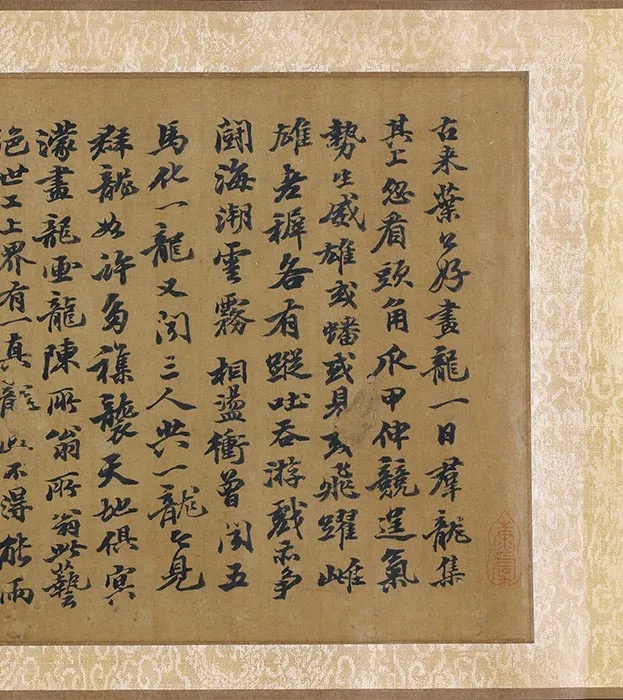 古来葉公好畫龍一日羣龍集
其上忽看頭角爪甲伸競逞氣
勢生威雄或蟠或見或飛躍雌
雄老稺各有蹤吐吞游戲亦爭
鬪海潮雲霧相盪衝曽聞五
馬化一龍又聞三人共一龍今見
群龍如許多襍襲天地俱冥
濛畫龍画龍陳所翁所翁此藝
絶世工上界有一真龍此不得能雨